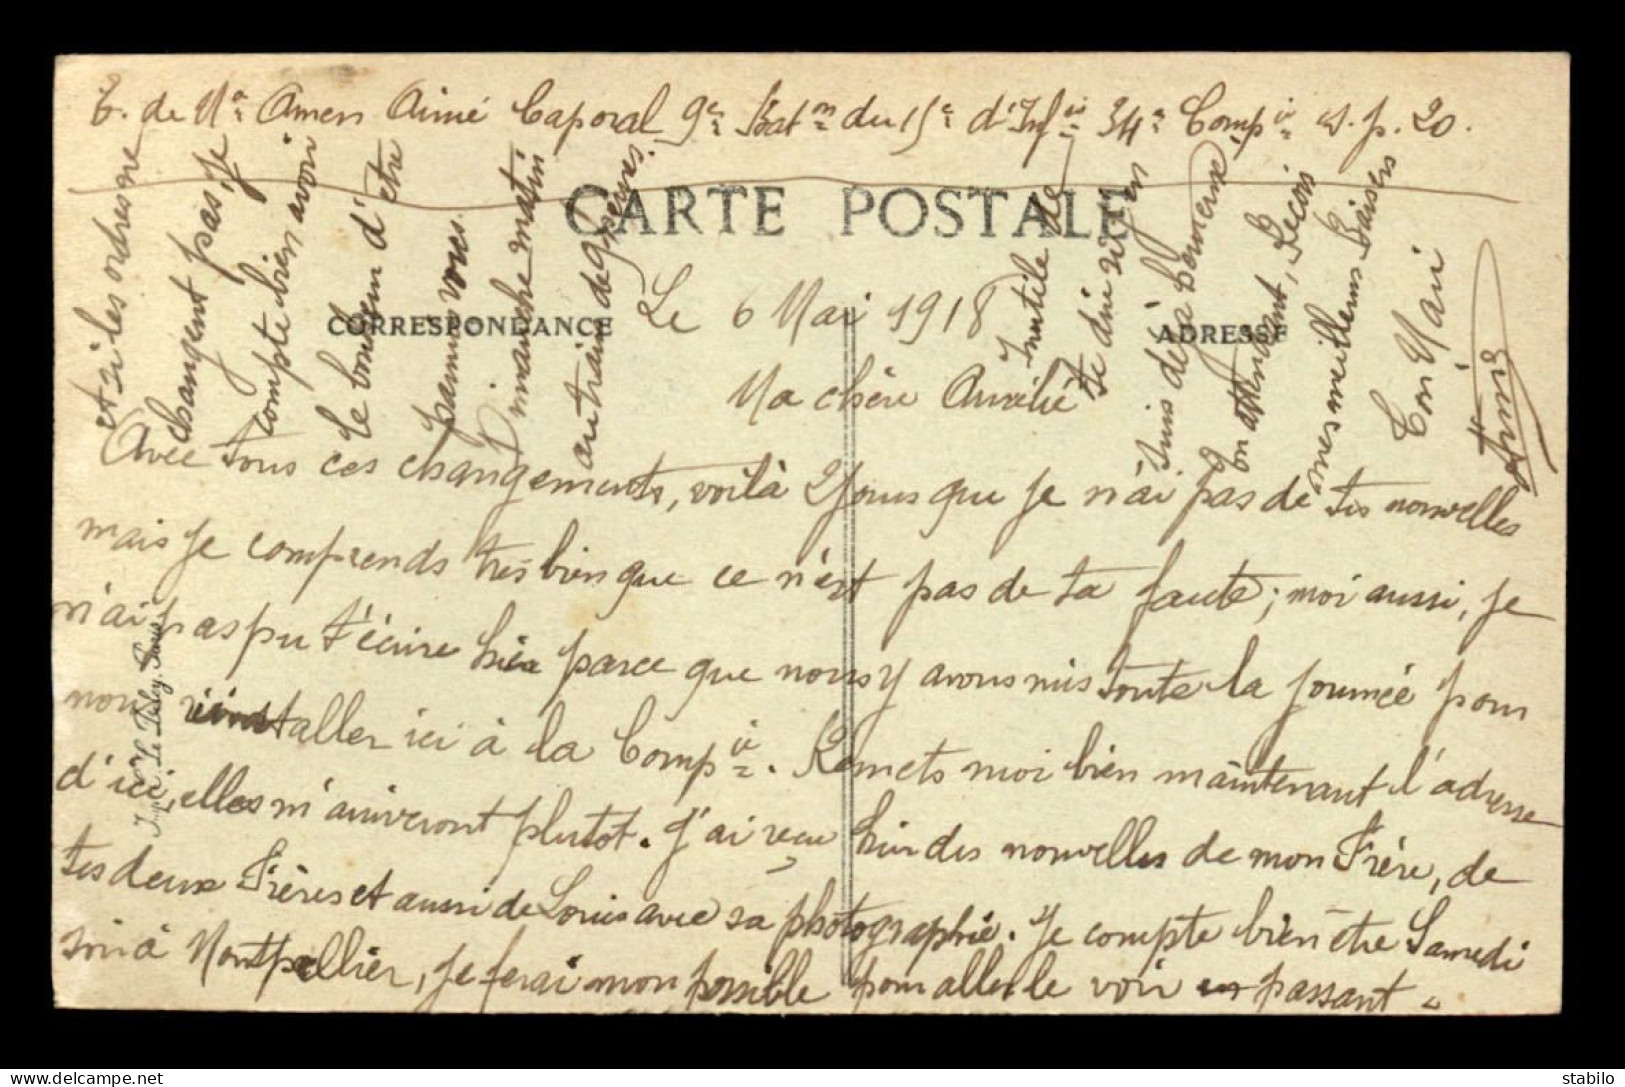 E. de Mr Amen Aimé Caporal 9e Batm du 15e d'Infie 34e Compie S.p. 20.
CARTE POSTALE
CORRESPONDANCE
ADRESSE
Le 6 Mai 1918
Ma chère Aurélie
Avec tous ces changements, voilà 2 jours que je n'ai pas de tes nouvelles
mais je comprends très bien que ce n'est pas de ta faute; moi aussi, je
n'ai pas pu t'écrire hier parce que nous y avons mis toute la journée pour
nous réinstaller ici à la Compie. Remets moi bien maintenant l'adresse
d'ici, elles m'arriveront plutot. J'ai reçu hier des nouvelles de mon Frère, de
tes deux Frères et aussi de Louis avec sa photographie. Je compte bien être Samedi
soir à Montpellier, je ferai mon possible pour aller le voir en passant.
et si les ordres ne
changent pas, je
compte bien avoir
le bonheur d'être
parmi vous
Dimanche matin
au train de 9 heures.
Inutile de
te dire si j'en
suis déjà heureux
En attendant, Reçois
mes meilleurs Baisers
Ton Mari
Aimé
Impie Le Deley, Paris